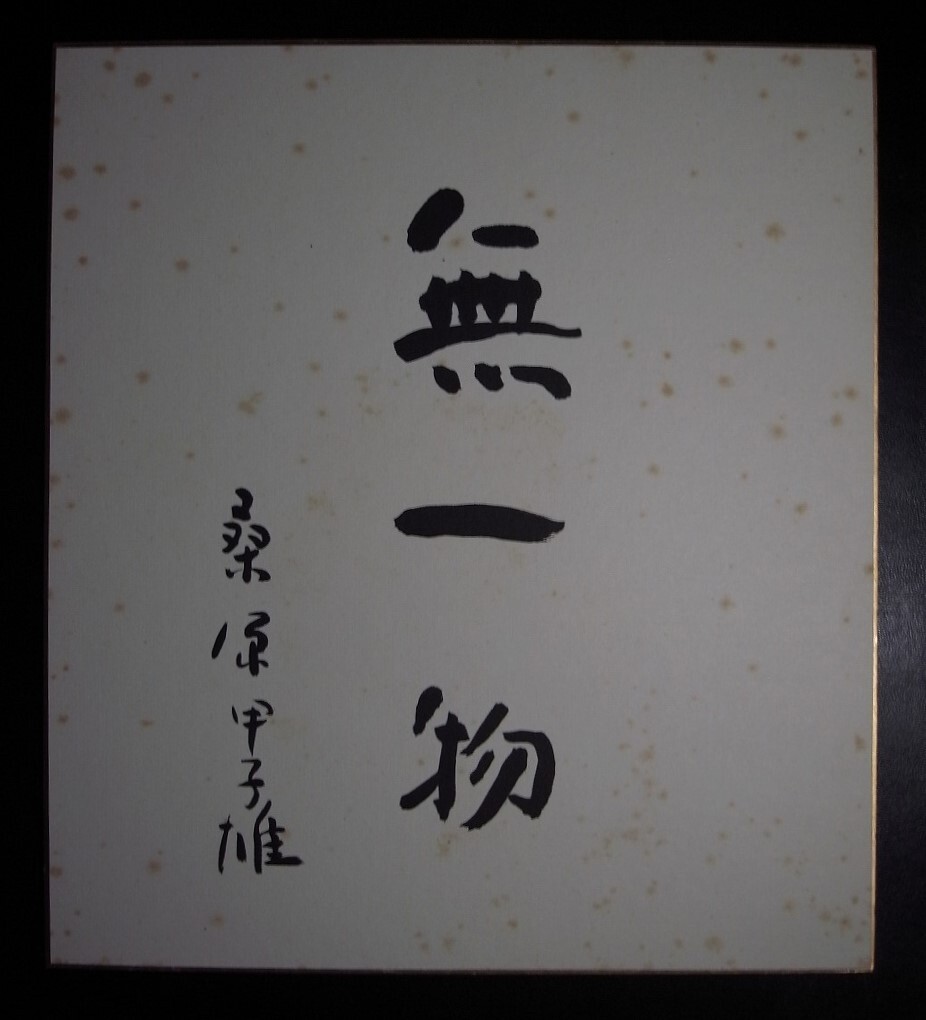 無一物
桑原甲子雄